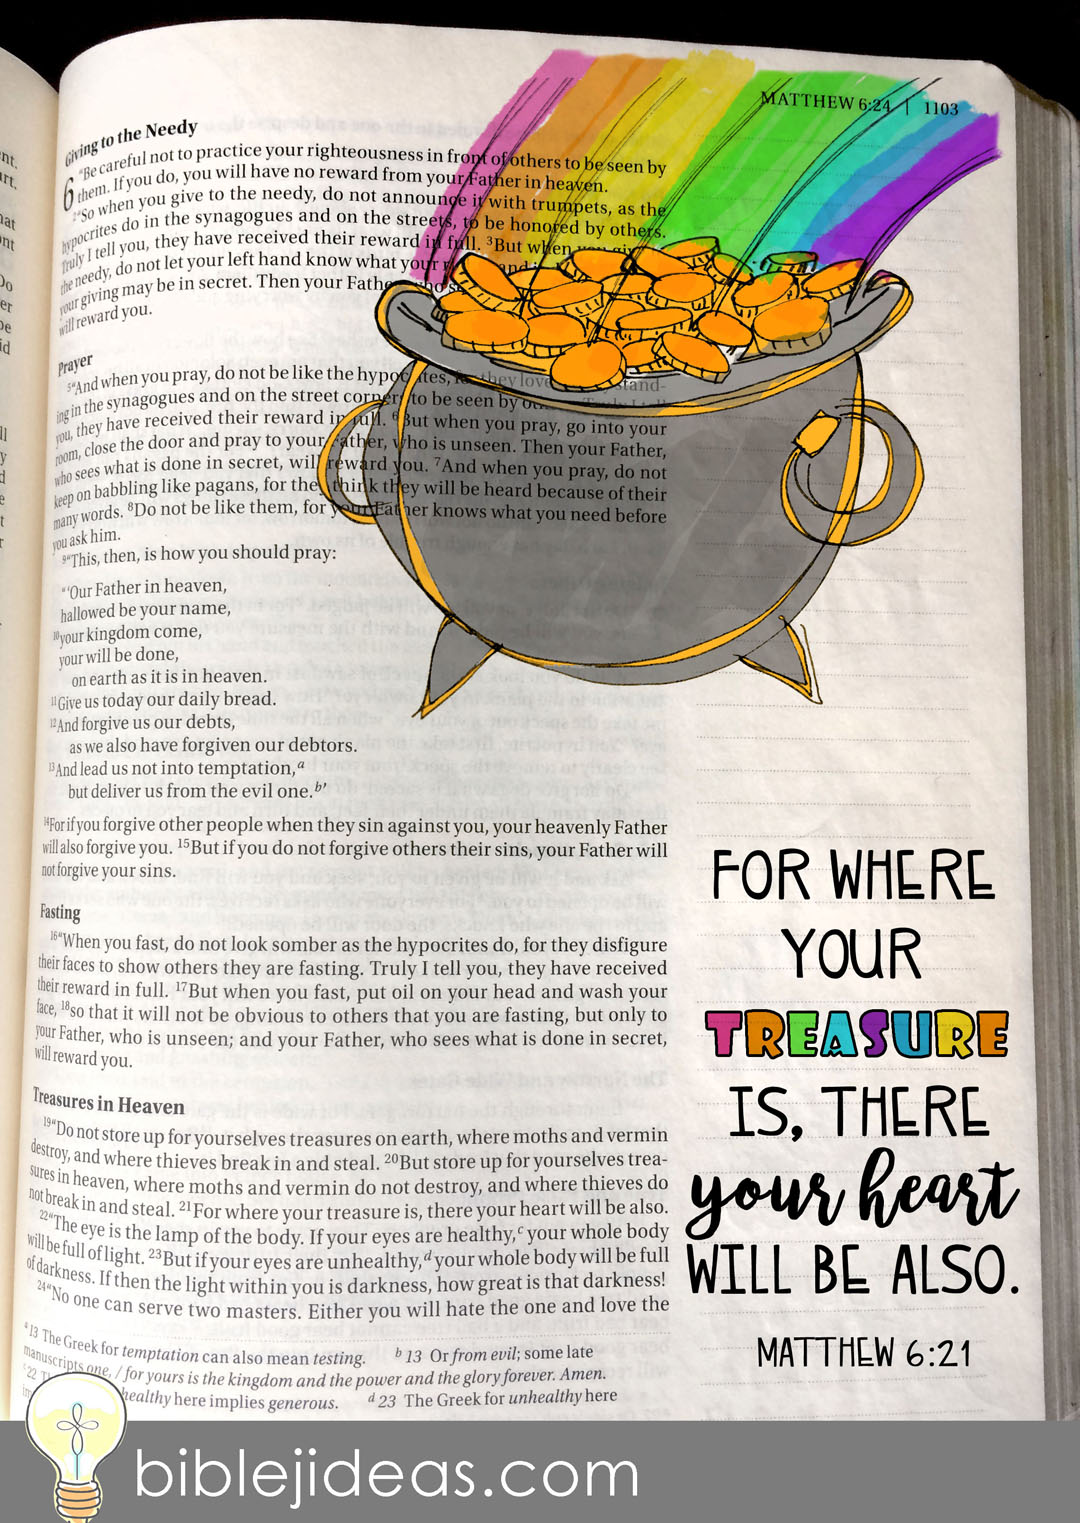 MATTHEW 6:24 | 1103
Giving to the Needy
6 "Be careful not to practice your righteousness in front of others to be seen by
them. If you do, you will have no reward from your Father in heaven.
2"So when you give to the needy, do not announce it with trumpets, as the
hypocrites do in the synagogues and on the streets, to be honored by others.
Truly I tell you, they have received their reward in full. 3But when you give
the needy, do not let your left hand know what your
your giving may be in secret. Then your Father, who
will reward you.
Prayer
5"And when you pray, do not be like the hypocrites, for they love stand-
ing in the synagogues and on the street corners to be seen by
you, they have received their reward in full. 6But when you pray, go into your
room, close the door and pray to your Father, who is unseen. Then your Father,
who sees what is done in secret, will reward you. 7And when you pray, do not
keep on babbling like pagans, for they think they will be heard because of their
many words. 8Do not be like them, for your Father knows what you need before
you ask him.
9"This, then, is how you should pray:
"'Our Father in heaven,
hallowed be your name,
10your kingdom come,
your will be done,
on earth as it is in heaven.
11Give us today our daily bread.
12And forgive us our debts,
as we also have forgiven our debtors.
13And lead us not into temptation,a
but deliver us from the evil one.b'
14For if you forgive other people when they sin against you, your heavenly Father
will also forgive you. 15But if you do not forgive others their sins, your Father will
not forgive your sins.
Fasting
16"When you fast, do not look somber as the hypocrites do, for they disfigure
their faces to show others they are fasting. Truly I tell you, they have received
their reward in full. 17But when you fast, put oil on your head and wash your
face, 18so that it will not be obvious to others that you are fasting, but only to
your Father, who is unseen; and your Father, who sees what is done in secret,
will reward you.
Treasures in Heaven
19"Do not store up for yourselves treasures on earth, where moths and vermin
destroy, and where thieves break in and steal. 20But store up for yourselves trea-
sures in heaven, where moths and vermin do not destroy, and where thieves do
not break in and steal. 21For where your treasure is, there your heart will be also.
22"The eye is the lamp of the body. If your eyes are healthy,c your whole body
will be full of light. 23But if your eyes are unhealthy,d your whole body will be full
of darkness. If then the light within you is darkness, how great is that darkness!
24"No one can serve two masters. Either you will hate the one and love the
a 13 The Greek for temptation can also mean testing. b 13 Or from evil; some late
manuscripts one, / for yours is the kingdom and the power and the glory forever. Amen.
c 22 healthy here implies generous. d 23 The Greek for unhealthy here
FOR WHERE
YOUR
TREASURE
IS, THERE
your heart
WILL BE ALSO.
MATTHEW 6:21
biblejideas.com